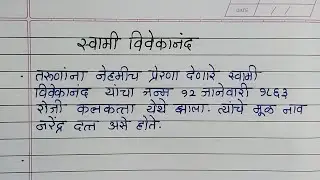 DATE
स्वामी विवेकानंद
• तरूणांना नेहमीच प्रेरणा देणारे स्वामी
विवेकानंद यांचा जन्म १२ जानेवारी १८६३
रोजी कलकत्ता येथे झाला. त्यांचे मूळ नाव
नरेंद्र दत्त असे होते.